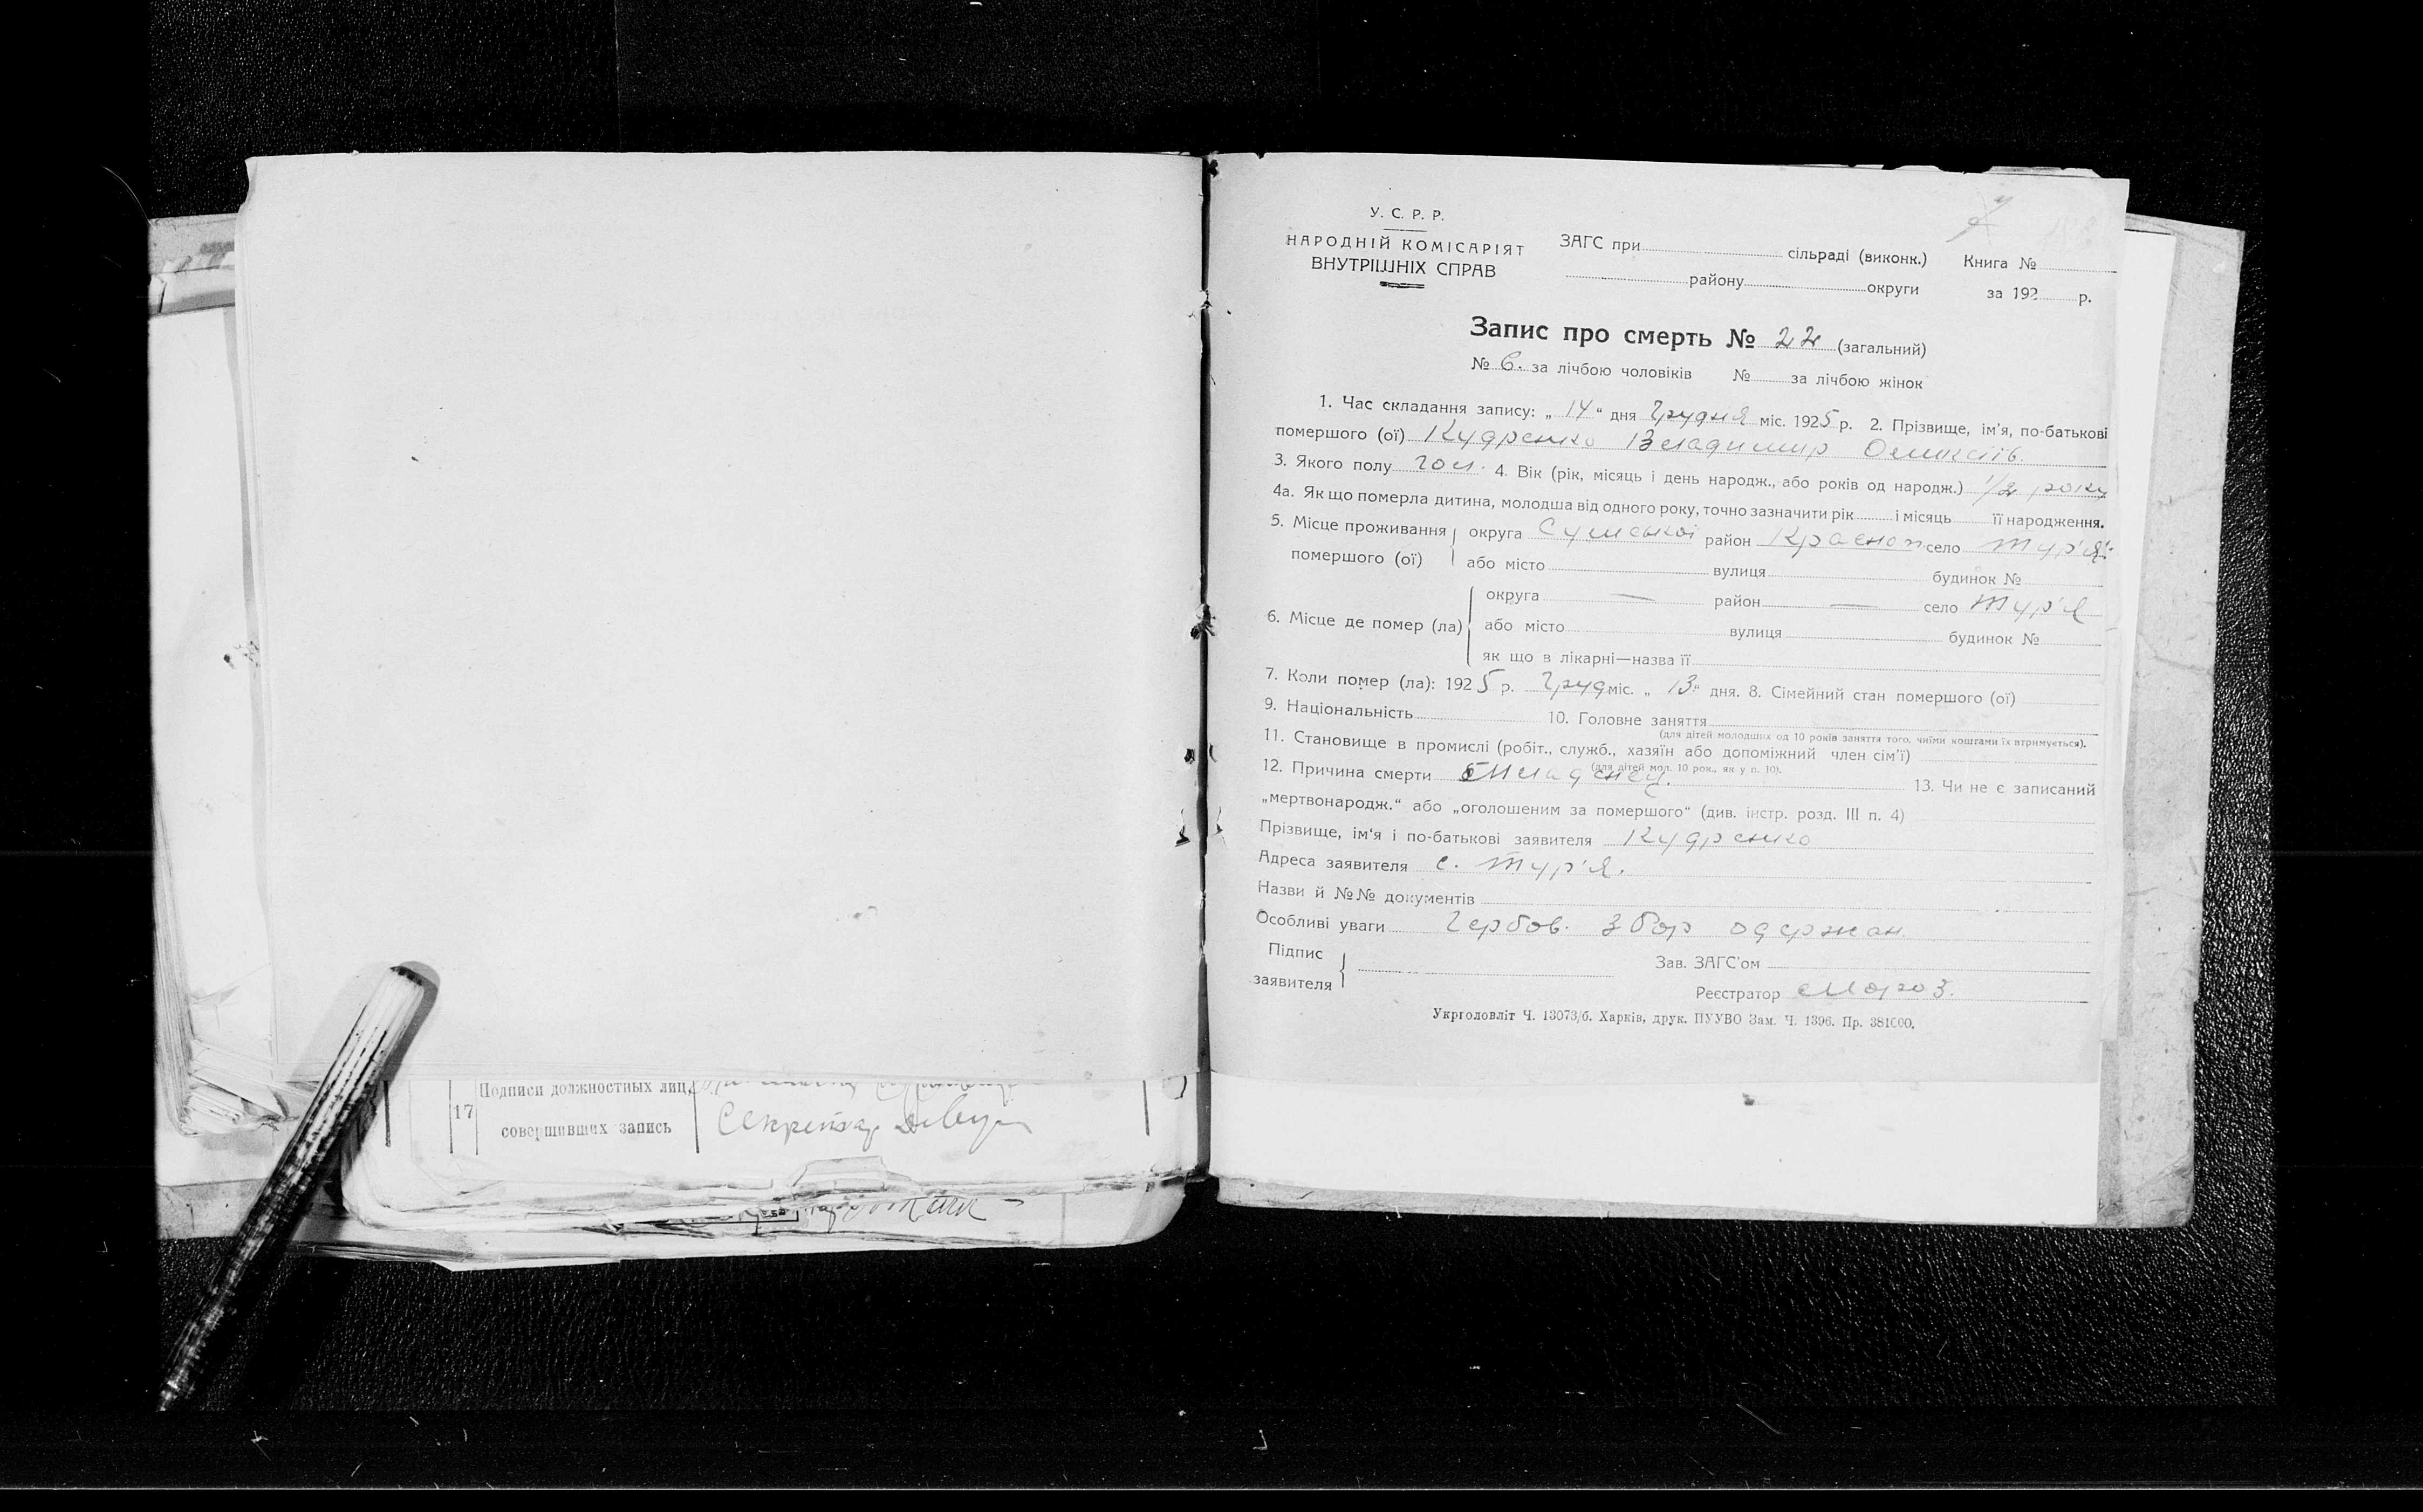 У. С. Р. Р.
НАРОДНІЙ КОМІСАРІЯТ
ВНУТРІШНІХ СПРАВ
ЗАГС при сільраді (виконк.)
району округи
Книга №
за 192 р.
Запис про смерть № 22 (загальний)
№ 6. за лічбою чоловіків № за лічбою жінок
1. Час складання запису: „ 14 “ дня Грудня міс. 1925 р. 2. Прізвище, ім’я, по-батькові
помершого (ої) Кудренко Владимир
3. Якого полу чол. 4. Вік (рік, місяць і день народж., або років од народж.) 1/2 року
4а. Як що померла дитина, молодша від одного року, точно зазначити рік і місяць її народження.
5. Місце проживання округа Сумської район Красноп село Тур'я
помершого (ої) або місто вулиця будинок №
округа — район — село Тур'я
6. Місце де помер (ла) або місто вулиця будинок №
як що в лікарні—назва її
7. Коли помер (ла): 1925 р. Груд міс. „ 13 “ дня. 8. Сімейний стан помершого (ої)
9. Національність 10. Головне заняття
(для дітей молодших од 10 років заняття того, чиїми коштами їх втримується).
11. Становище в промислі (робіт., служб., хазяїн або допоміжний член сім’ї)
(для дітей мол. 10 рок., як у п. 10).
12. Причина смерти младенец. 13. Чи не є записаний
„мертвонародж.“ або „оголошеним за помершого“ (див. інстр. розд. III п. 4)
Прізвище, ім‘я і по-батькові заявителя Кудренко
Адреса заявителя с. Тур'я.
Назви й №№ документів
Особливі уваги Гербов. збор одержан
Підпис
заявителя
Зав. ЗАГС’ом
Реєстратор Мороз.
Укрголовліт Ч. 13073/б. Харків, друк. ПУУВО Зам. Ч. 1396. Пр. 381000.
17
Подписи должностных лиц,
совершивших запись
Секретарь